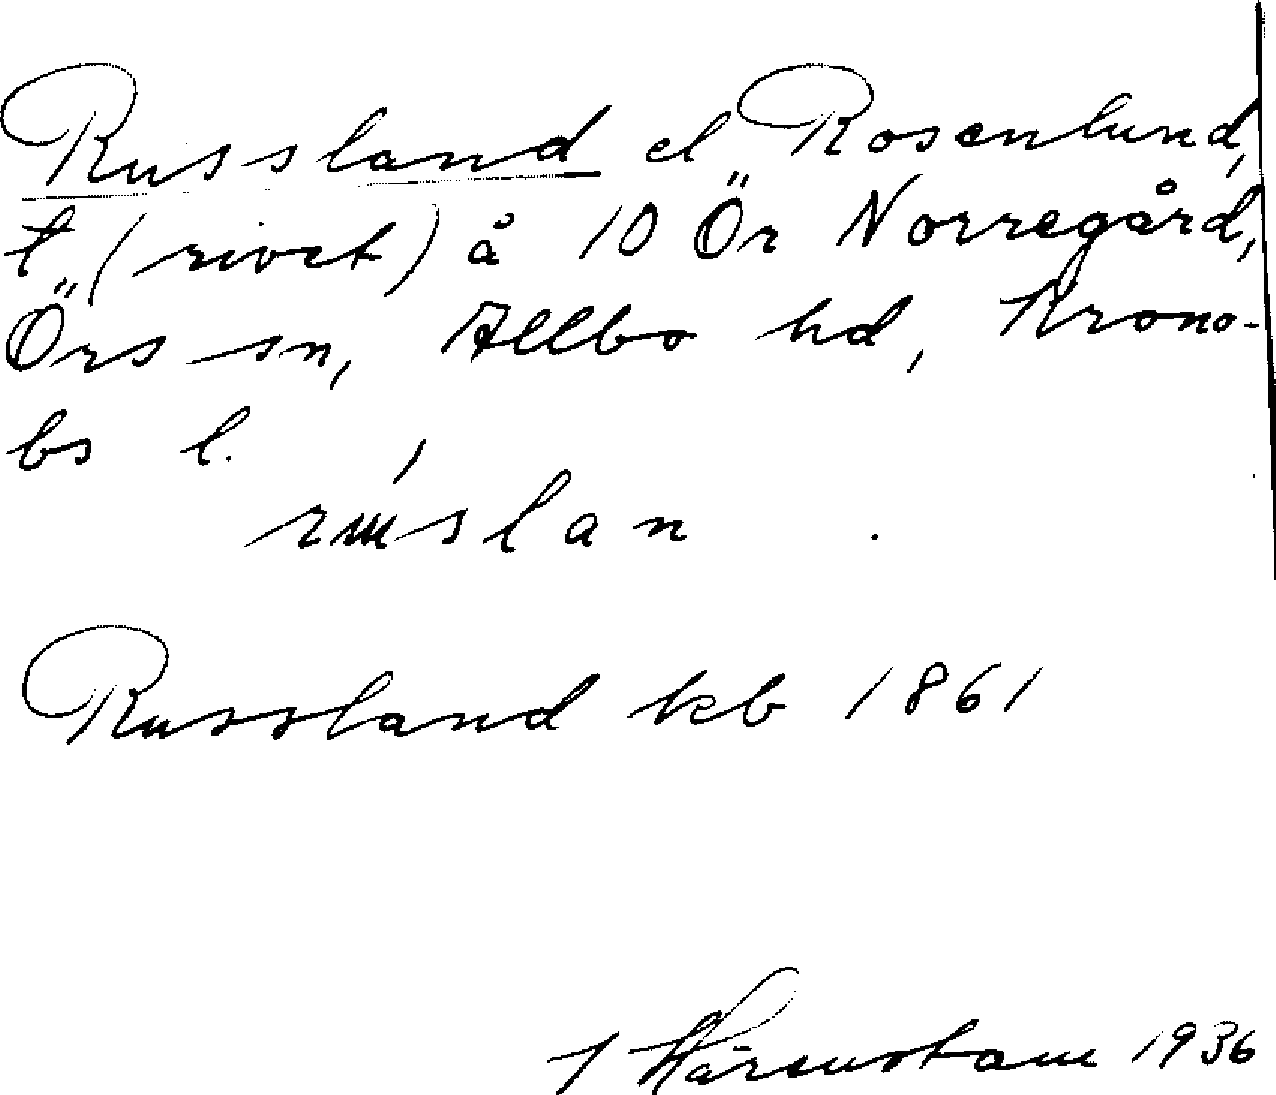 Russland el Rosenlund,
t (rivet) å 10 Ör Norregård,
Örs sn, Allbo hd, Krono-
bs l.
Russland kb 1861
1936